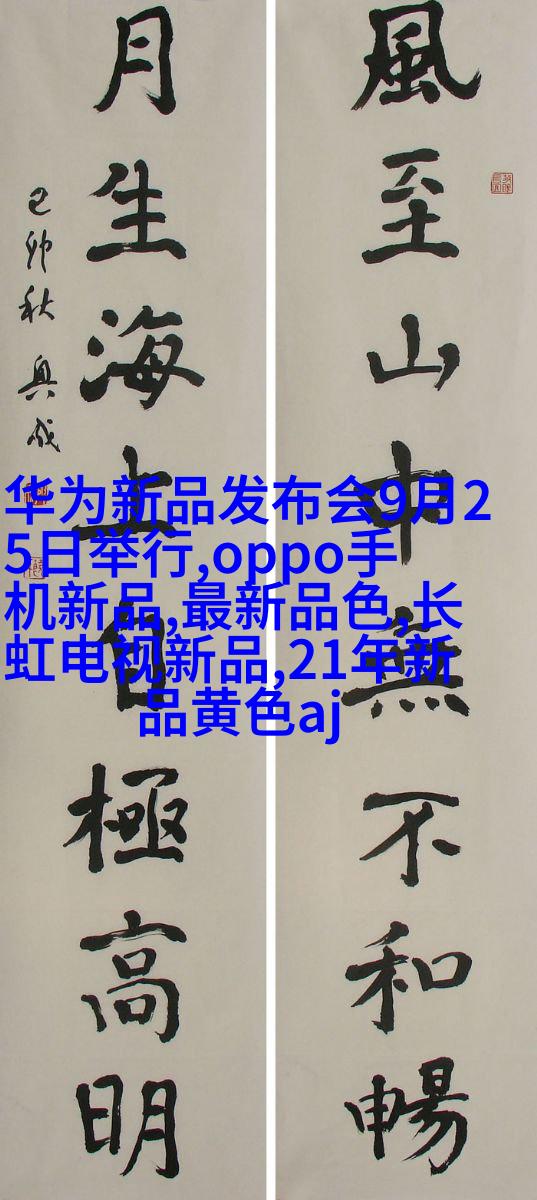 風至山中無不和暢
月生海上自極高明
己卯秋
华为新品发布会9月2
5日举行,oppo手
机新品,最新品色,长
虹电视新品,21年新
品黄色aj